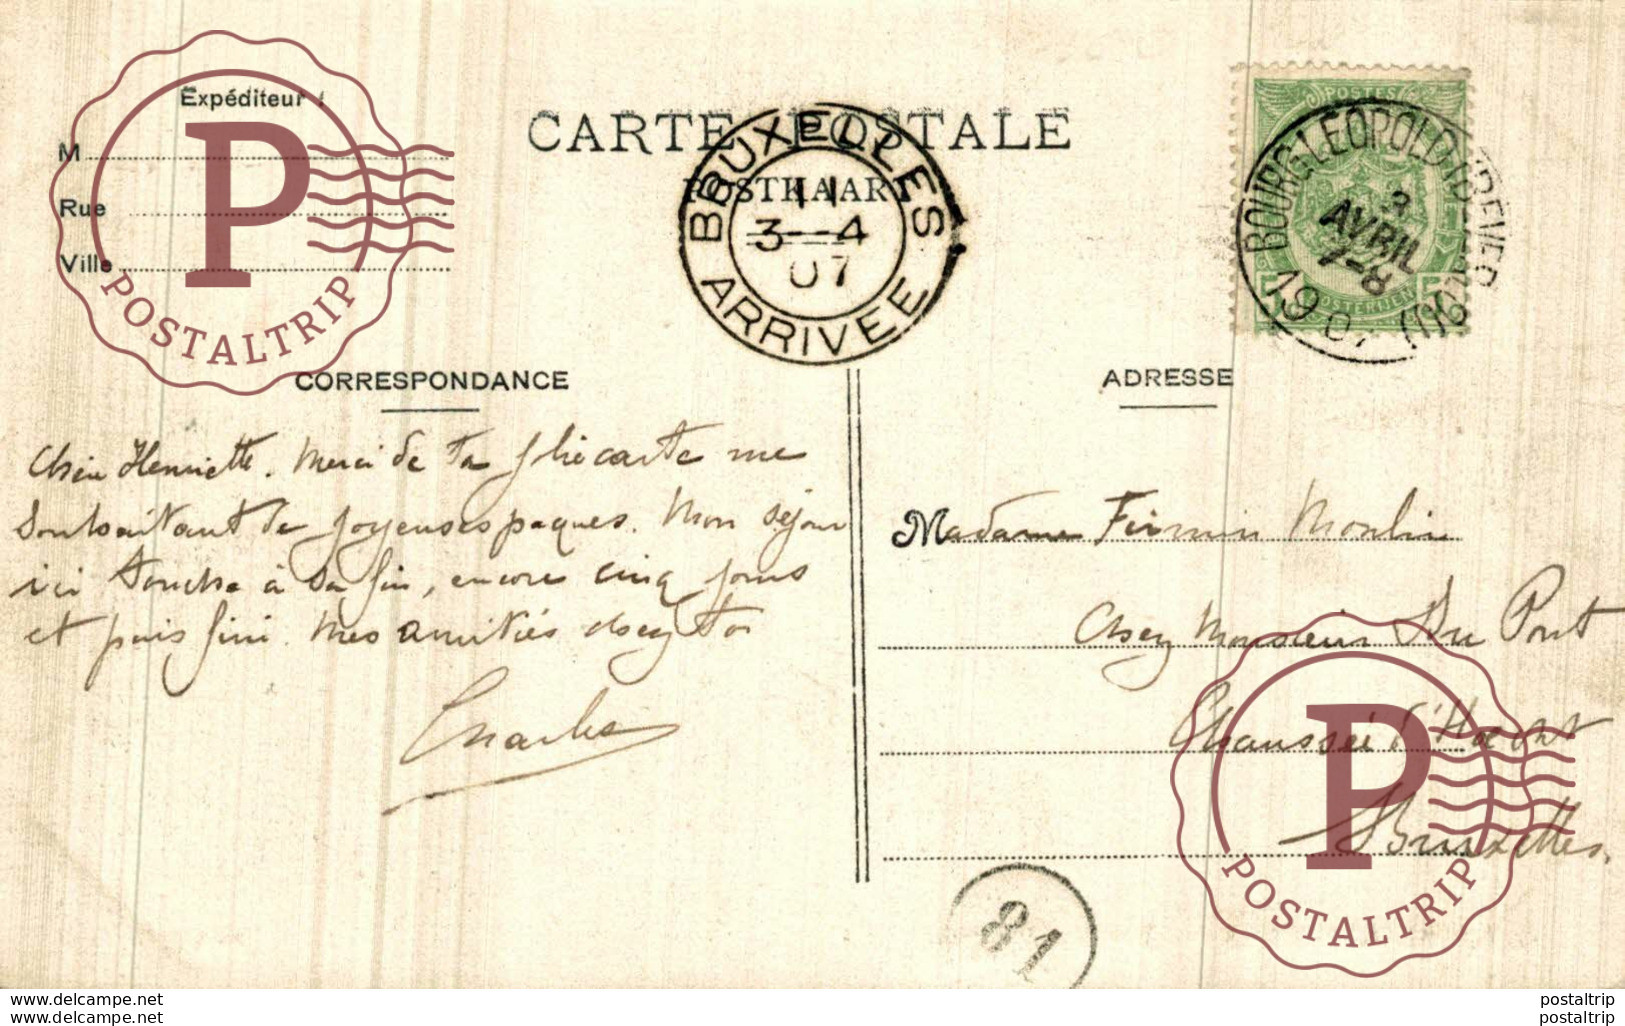 Expéditeur :
M
Rue
Ville
CARTE POSTALE
POSTKAART
BRUXELLES
11
3-4
07
ARRIVÉE
POSTES
BOURG-LEOPOLD
3
AVRIL
7-8
1907
POSTERIJEN
CORRESPONDANCE
ADRESSE
Chère Henriette. Merci de ta jolie carte me
souhaitant de joyeuses paques. Mon séjour
ici touche à sa fin, encore cinq jours
et puis fini. Mes amitiés chez toi
Charles
Madame Firmin Moulin
Chez Monsieur Du Pont
Chaussée d'Haecht
Bruxelles.
81
P
POSTALTRIP
P
POSTALTRIP
www.delcampe.net
www.delcampe.com
postaltrip
postaltrip